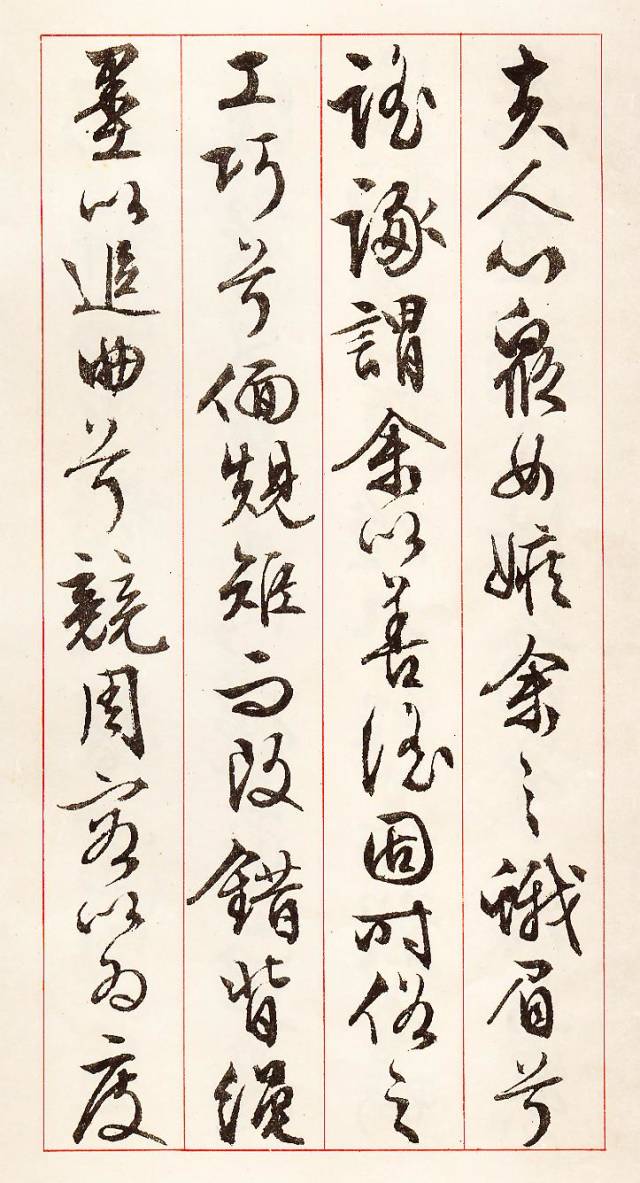 夫人心衆女嫉余之蛾眉兮
謠諑謂余以善淫固時俗之
工巧兮偭規矩而改錯背繩
墨以追曲兮競周容以為度